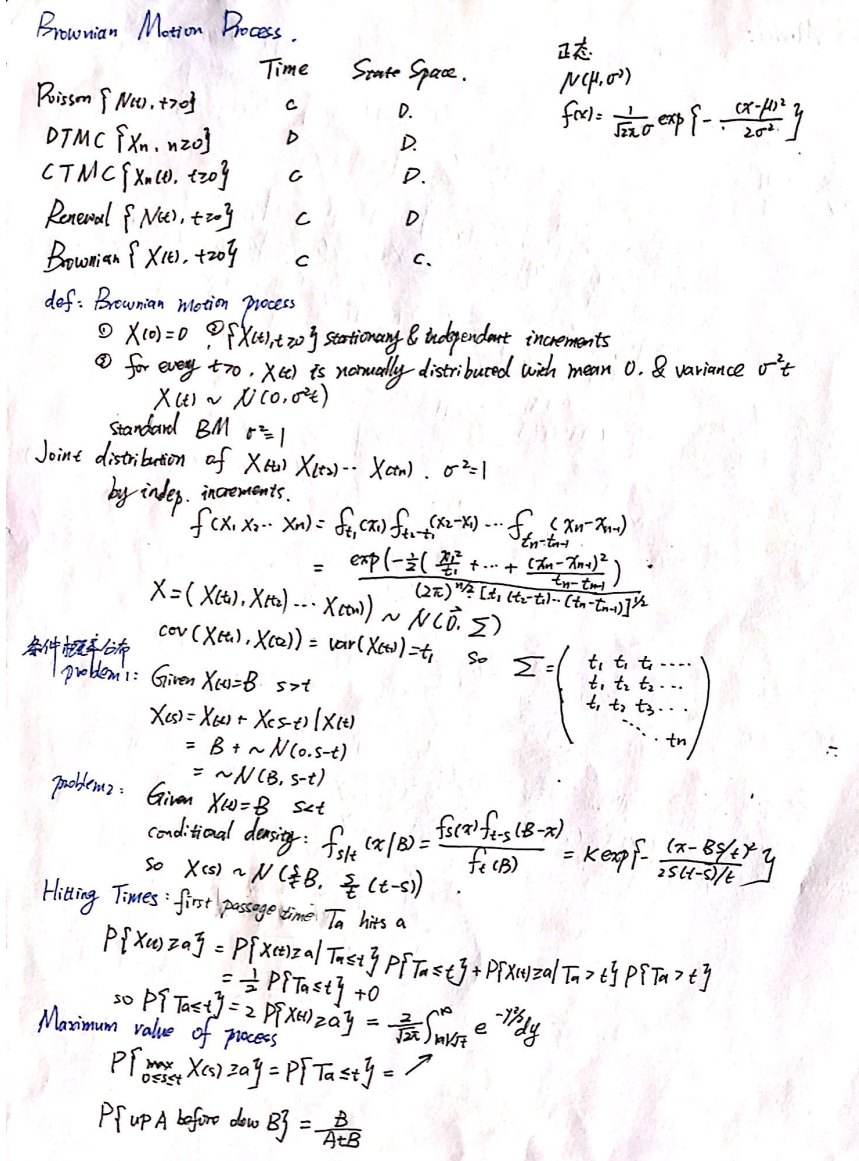 Brownian Motion Process.
Time State Space.
正态
N(μ,σ²)
f(x)= 1/√2πσ exp{- (x-μ)²/2σ² }
Poisson {N(t), t>0} C D.
DTMC {Xn, n≥0} D D.
CTMC {Xn(t), t≥0} C D.
Renewal {N(t), t≥0} C D
Brownian {X(t), t≥0} C C.
def: Brownian motion process
① X(0)=0 ② {X(t), t≥0} stationary & independent increments
③ for every t>0, X(t) is normally distributed with mean 0. & variance σ²t
X(t) ~ N(0,σ²t)
standard BM σ²=1
Joint distribution of X(t1) X(t2)-- X(tn). σ²=1
by indep. increments.
f(X1 X2-- Xn) = f_t1(x1) f_t2-t1(x2-x1) --- f_tn-tn-1(xn-xn-1)
= exp(-½( x1²/t1 + --- + (xn-xn-1)²/tn-tn-1 ) / (2π)^n/2 [t1(t2-t1)--(tn-tn-1)]^1/2
X=(X(t1), X(t2)--- X(tn)) ~ N(0⃗, Σ)
cov(X(t1), X(t2)) = var(X(t1))=t1 so Σ=( t1 t1 t1 ----
t1 t2 t2 ---
t1 t2 t3 ---
tn )
条件概率分布
problem1: Given X(t)=B s>t
X(s)=X(t) + X(s-t)|X(t)
= B + ~N(0.s-t)
= ~N(B, s-t)
problem2: Given X(t)=B s<t
conditional density: f_s|t(x|B)= fs(x)f_t-s(B-x) / ft(B) = K exp{- (x-Bs/t)² / 2s(t-s)/t }
so X(s) ~ N(s/t B, s/t (t-s))
Hitting Times: first passage time Ta hits a
P{X(t)≥a} = P{X(t)≥a|Ta≤t} P{Ta≤t}+P{X(t)≥a|Ta>t} P{Ta>t}
= ½ P{Ta≤t} +0
so P{Ta≤t}=2 P{X(t)≥a} = 2/√2π ∫_|a|/√t^∞ e^-y²/2 dy
Maximum value of process
P{max 0≤s≤t X(s)≥a}=P{Ta≤t}= ↗
P{up A before dow B} = B/A+B